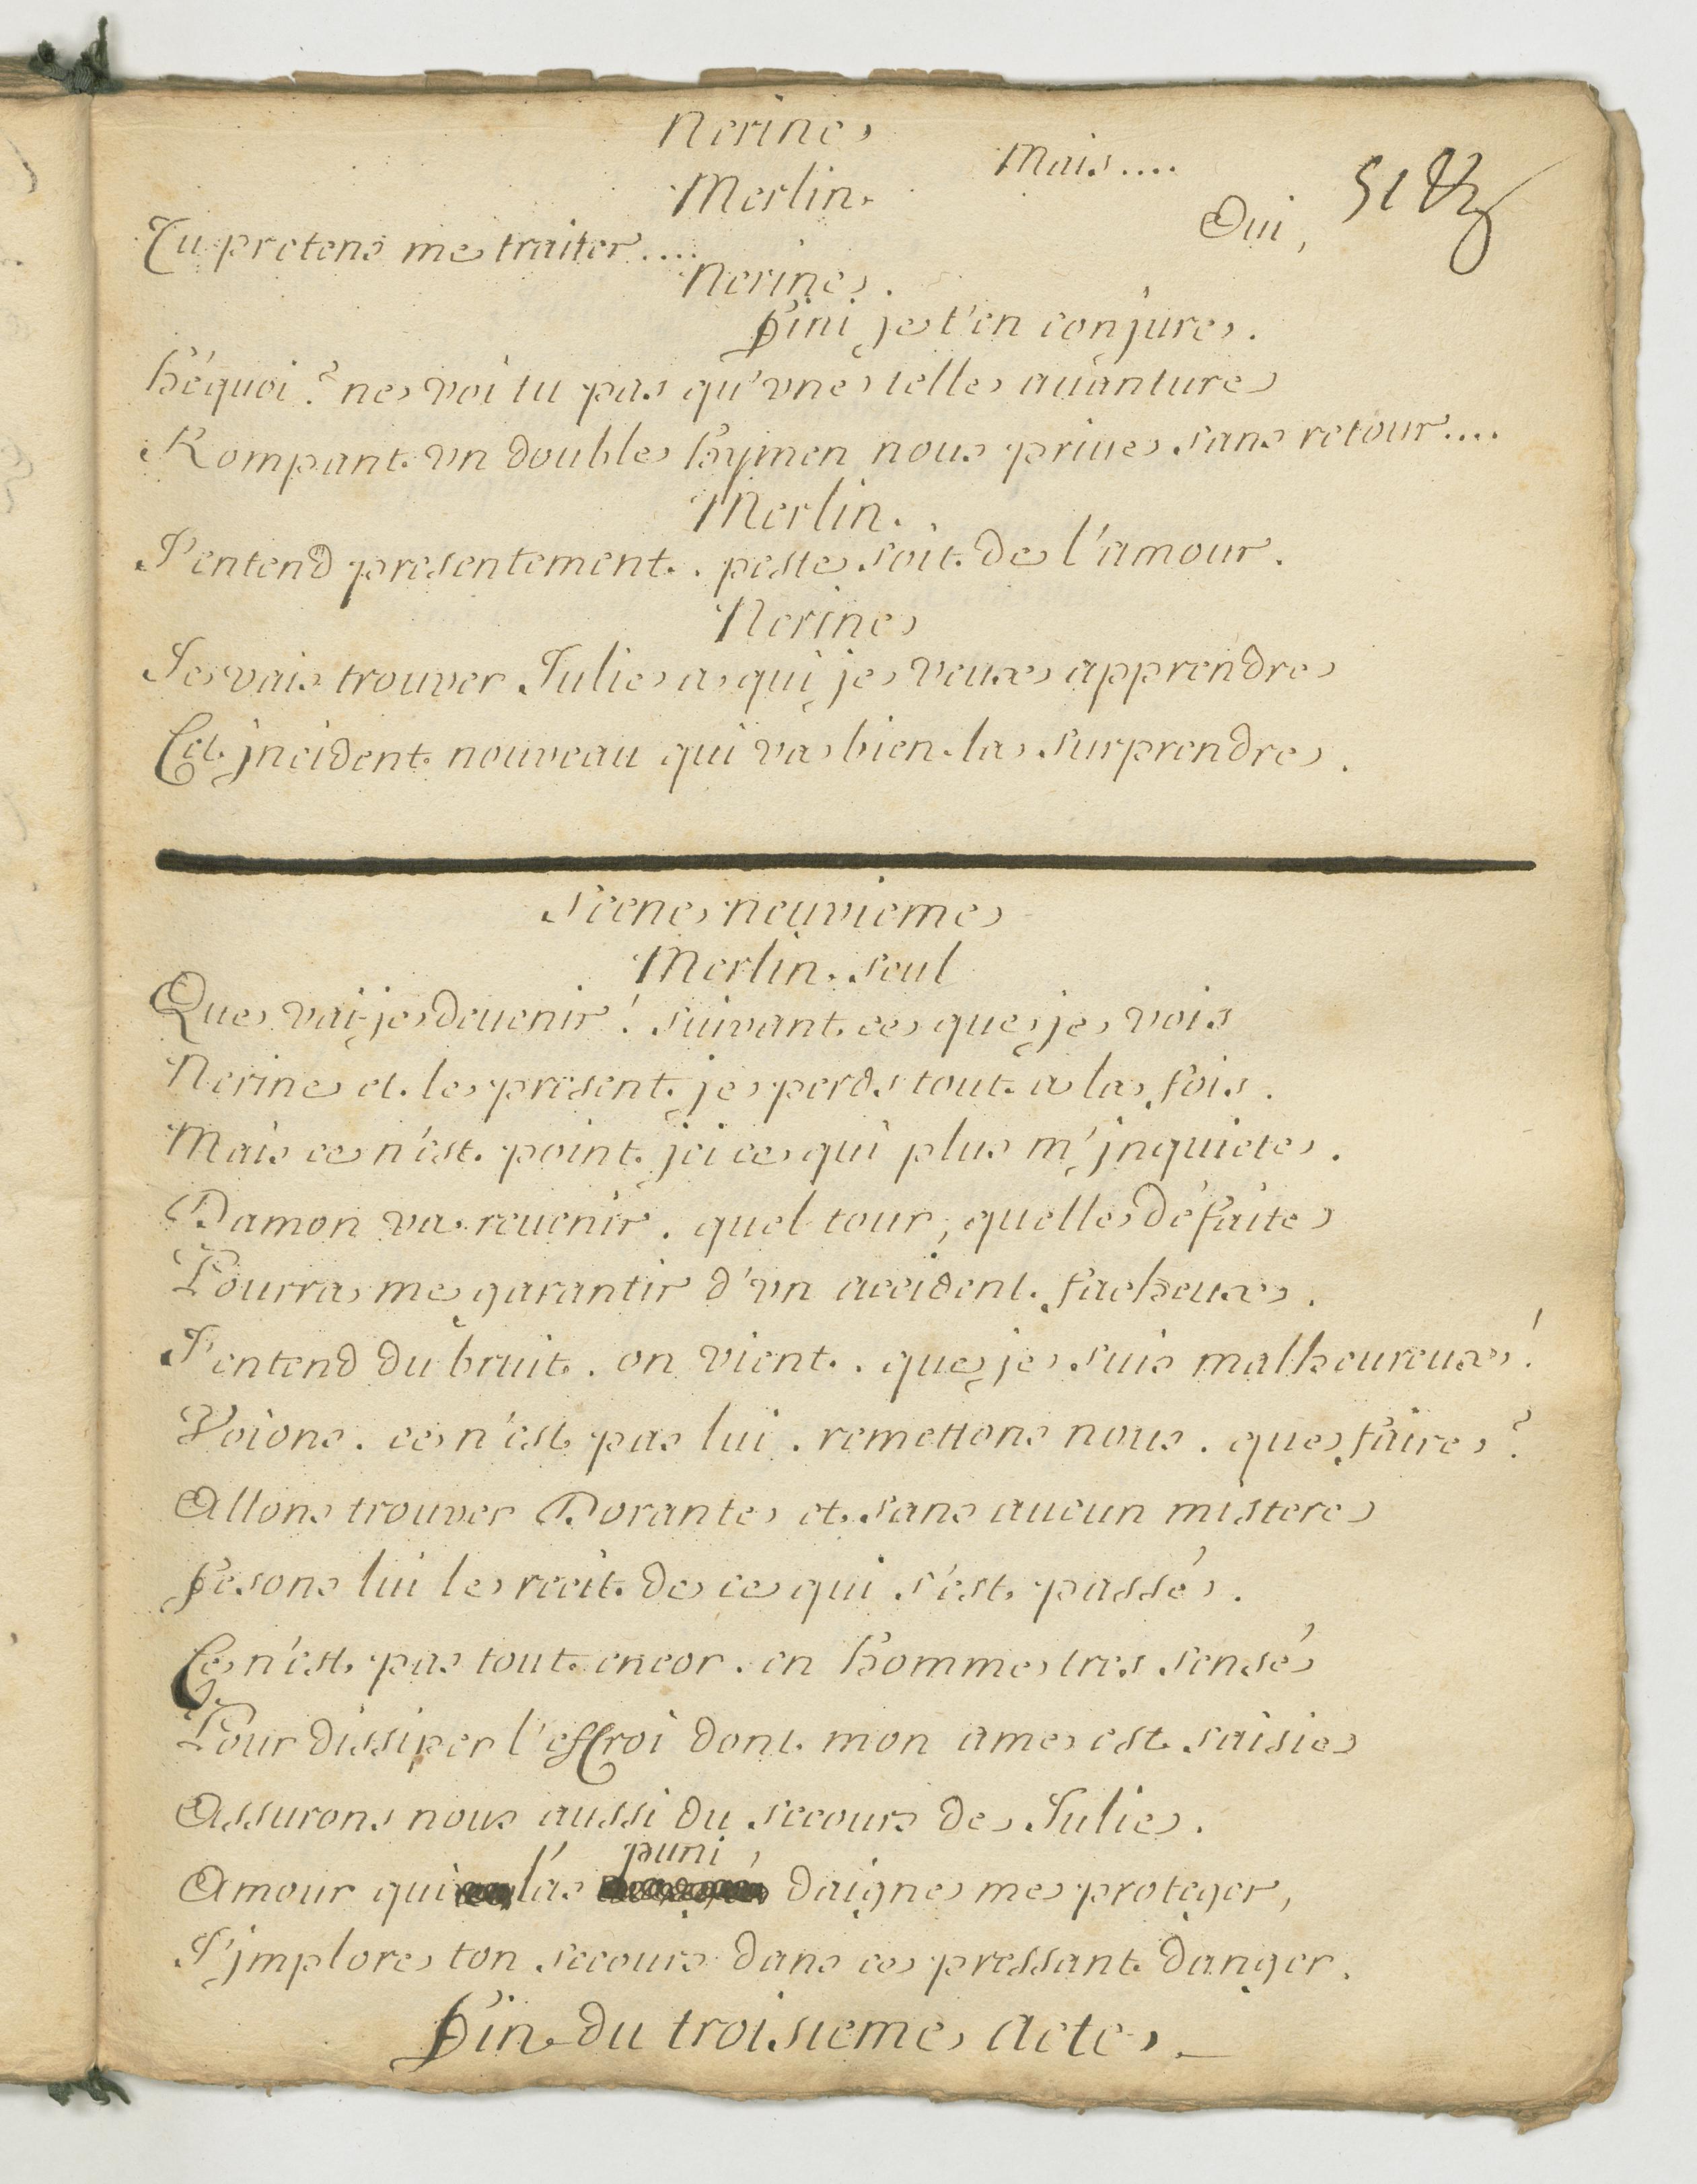 Nerine
Mais....
Merlin.
Oui,
51
Tu pretens me traiter....
Nerine.
Fini je t'en conjure.
hé quoi? ne voi tu pas qu'vne telle auanture
Rompant vn double hymen nous priue sans retour....
Merlin.
J'entend presentement. peste soit de l'amour.
Nerine
Je vais trouver Julie a qui je veux apprendre
Cet jncident nouveau qui va bien la surprendre.
Scene neuvieme
Merlin. seul
Que vai-je deuenir! suivant ce que je vois
Nerine et le present je perds tout a la fois.
Mais ce n'est point jci ce qui plus m'jnquiete.
Damon va reuenir. quel tour, quelle défaite
Pourra me garantir d'vn accident facheux.
J'entend du bruit. on vient. que je suis malheureux!
Voions. ce n'est pas lui. remettons nous. que faire?
Allons trouver Dorante et sans aucun mistere
Fesons lui le recit de ce qui s'est passé.
Ce n'est pas tout encor. en homme tres sensé
Pour dissiper l'effroi dont mon ame est saisie
Assurons nous aussi du secours de Julie.
puni,
Amour qui l'as daigne me proteger,
J'jmplore ton secours dans ce pressant danger.
Fin du troisieme acte